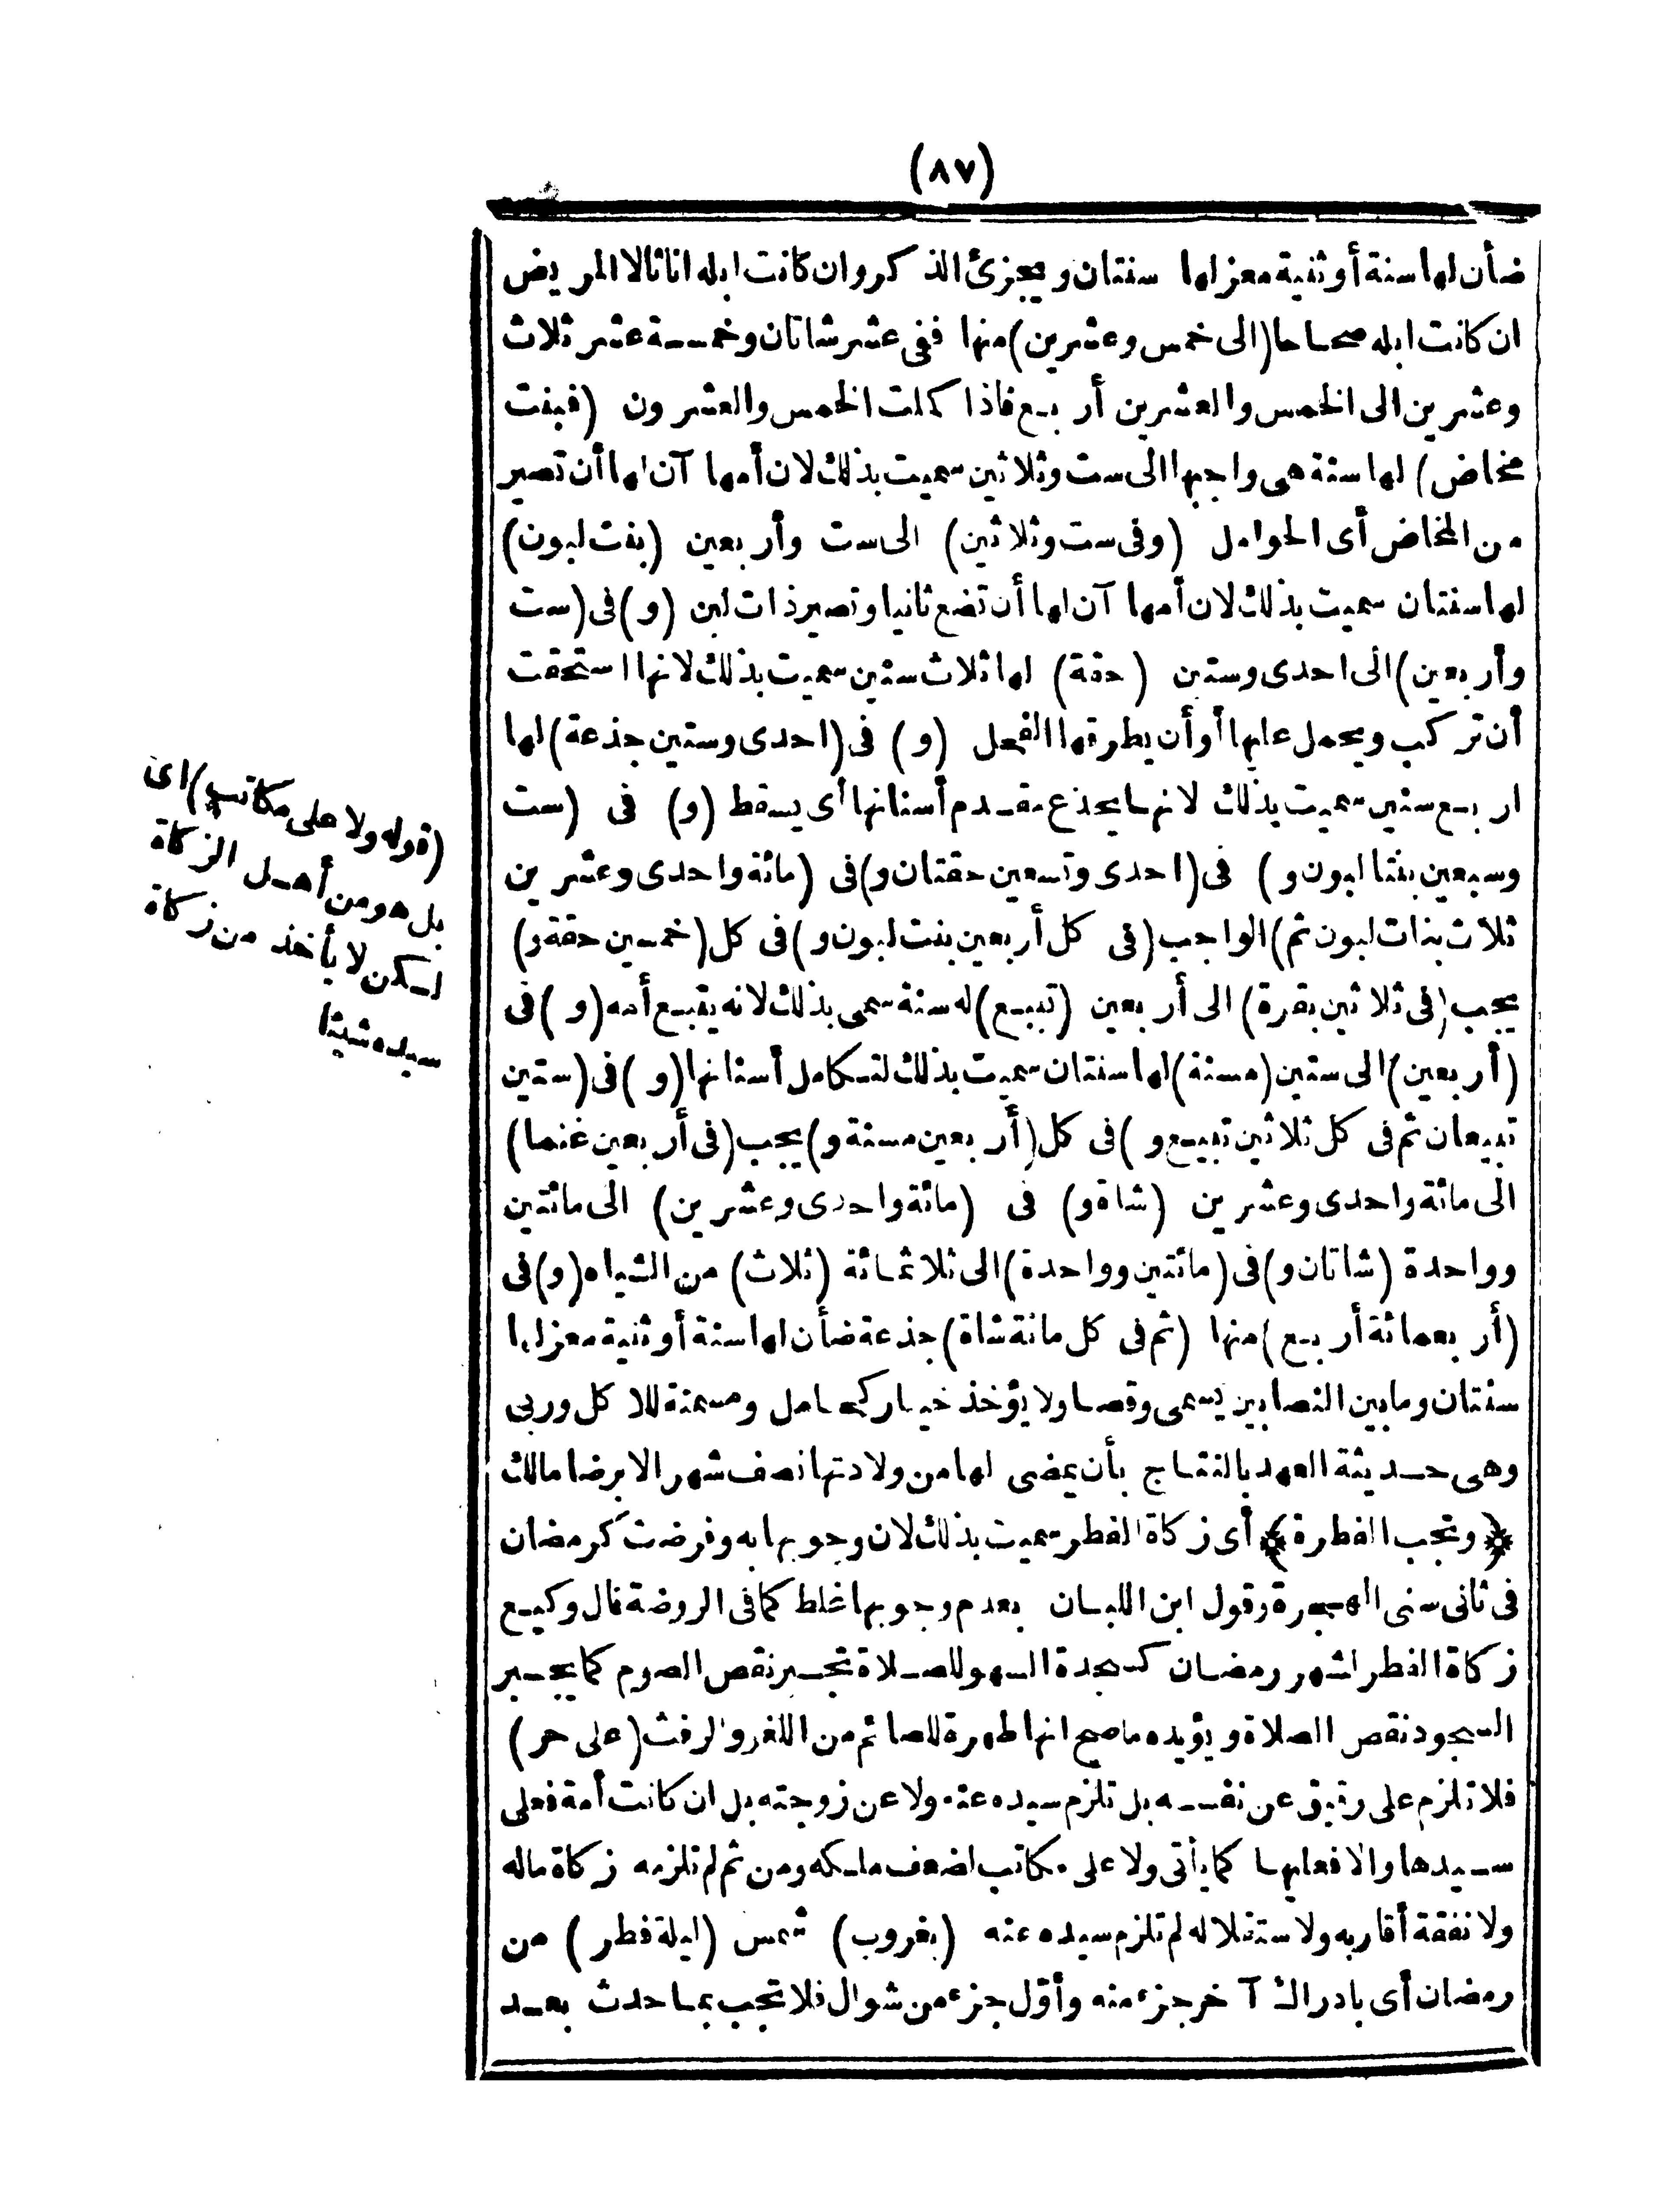 (٨٧)
ضأن لها سنة أو ثنية معز لها سنتان ويجزئ الذكر وان كانت ابله اناثا لا المريض
ان كانت ابله صحاحا (الى خمس وعشرين) منها ففى عشر شاتان وخمسة عشر ثلاث
وعشرين الى الخمس والعشرين أربع فاذا كملت الخمس والعشرون (فبنت
مخاض) لها سنة هى واجبها الى ست وثلاثين سميت بذلك لان أمها آن لها أن تصير
من المخاض أى الحوامل (وفى ست وثلاثين) الى ست وأربعين (بنت لبون)
لها سنتان سميت بذلك لان أمها آن لها أن تضع ثانيا وتصير ذات لبن (و) فى (ست
وأربعين) الى احدى وستين (حقة) لها ثلاث سنين سميت بذلك لانها استحقت
أن تركب ويحمل عليها أو أن يطرقها الفحل (و) فى (احدى وستين جذعة) لها
اربع سنين سميت بذلك لانها يجذع مقدم أسنانها أى يسقط (و) فى (ست
وسبعين بنتا لبون و) فى (احدى وتسعين حقتان و) فى (مائة واحدى وعشرين
ثلاث بنات لبون ثم) الواجب (فى كل أربعين بنت لبون و) فى كل (خمسين حقة و)
يجب (فى ثلاثين بقرة) الى أربعين (تبيع) له سنة سمى بذلك لانه يتبع أمه (و) فى
(أربعين) الى ستين (مسنة) لها سنتان سميت بذلك لتكامل أسنانها (و) فى (ستين
تبيعان ثم فى كل ثلاثين تبيع و) فى كل (أربعين مسنة و) يجب (فى أربعين غنما)
الى مائة واحدى وعشرين (شاة و) فى (مائة واحدى وعشرين) الى مائتين
وواحدة (شاتان و) فى (مائتين وواحدة) الى ثلاثمائة (ثلاث) من الشياه (و) فى
(أربعمائة أربع) منها (ثم فى كل مائة شاة) جذعة ضأن لها سنة أو ثنية معز لها
سنتان وما بين النصابين يسمى وقصا ولا يؤخذ خيار كحامل ومسمنة للاكل وربى
وهى حديثة العهد بالنتاج بأن يمضى لها من ولادتها نصف شهر الا برضا مالك
﴿وتجب الفطرة﴾ أى زكاة الفطر سميت بذلك لان وجوبها به وفرضت كرمضان
فى ثانى سنى الهجرة وقول ابن اللبان بعدم وجوبها غلط كما فى الروضة قال وكيع
زكاة الفطر لشهر رمضان كسجدة السهو للصلاة تجبر نقص الصوم كما يجبر
السجود نقص الصلاة ويؤيده ما صح انها طهرة للصائم من اللغو والرفث (على حر)
فلا تلزم على رقيق عن نفسه بل تلزم سيده عنه ولا عن زوجته بل ان كانت أمة فعلى
سيدها والا فعليها كما يأتى ولا على مكاتب لضعف ملكه ومن ثم لم تلزمه زكاة ماله
ولا نفقة أقاربه ولاستقلاله لم تلزم سيده عنه (بغروب) شمس (ليلة فطر) من
رمضان أى بادراك آخر جزء منه وأوّل جزء من شوال فلا تجب بما حدث بعد
(قوله ولا على مكاتب) اى
بل هو من أهل الزكاة
لكن لا يأخذ من زكاة
سيده شيئا